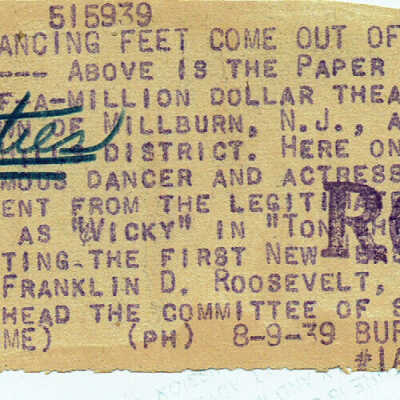 515939
ANCING FEET COME OUT OF
--- ABOVE IS THE PAPER
F-A-MILLION DOLLAR THEA
N OF MILLBURN, N.J., A
DISTRICT. HERE ON
MOUS DANCER AND ACTRESS
ENT FROM THE LEGITIMATE
AS "WICKY" IN "TON
TING THE FIRST NEW
FRANKLIN D. ROOSEVELT,
HEAD THE COMMITTEE OF S
ME) (PH) 8-9-39 BUR
#1A